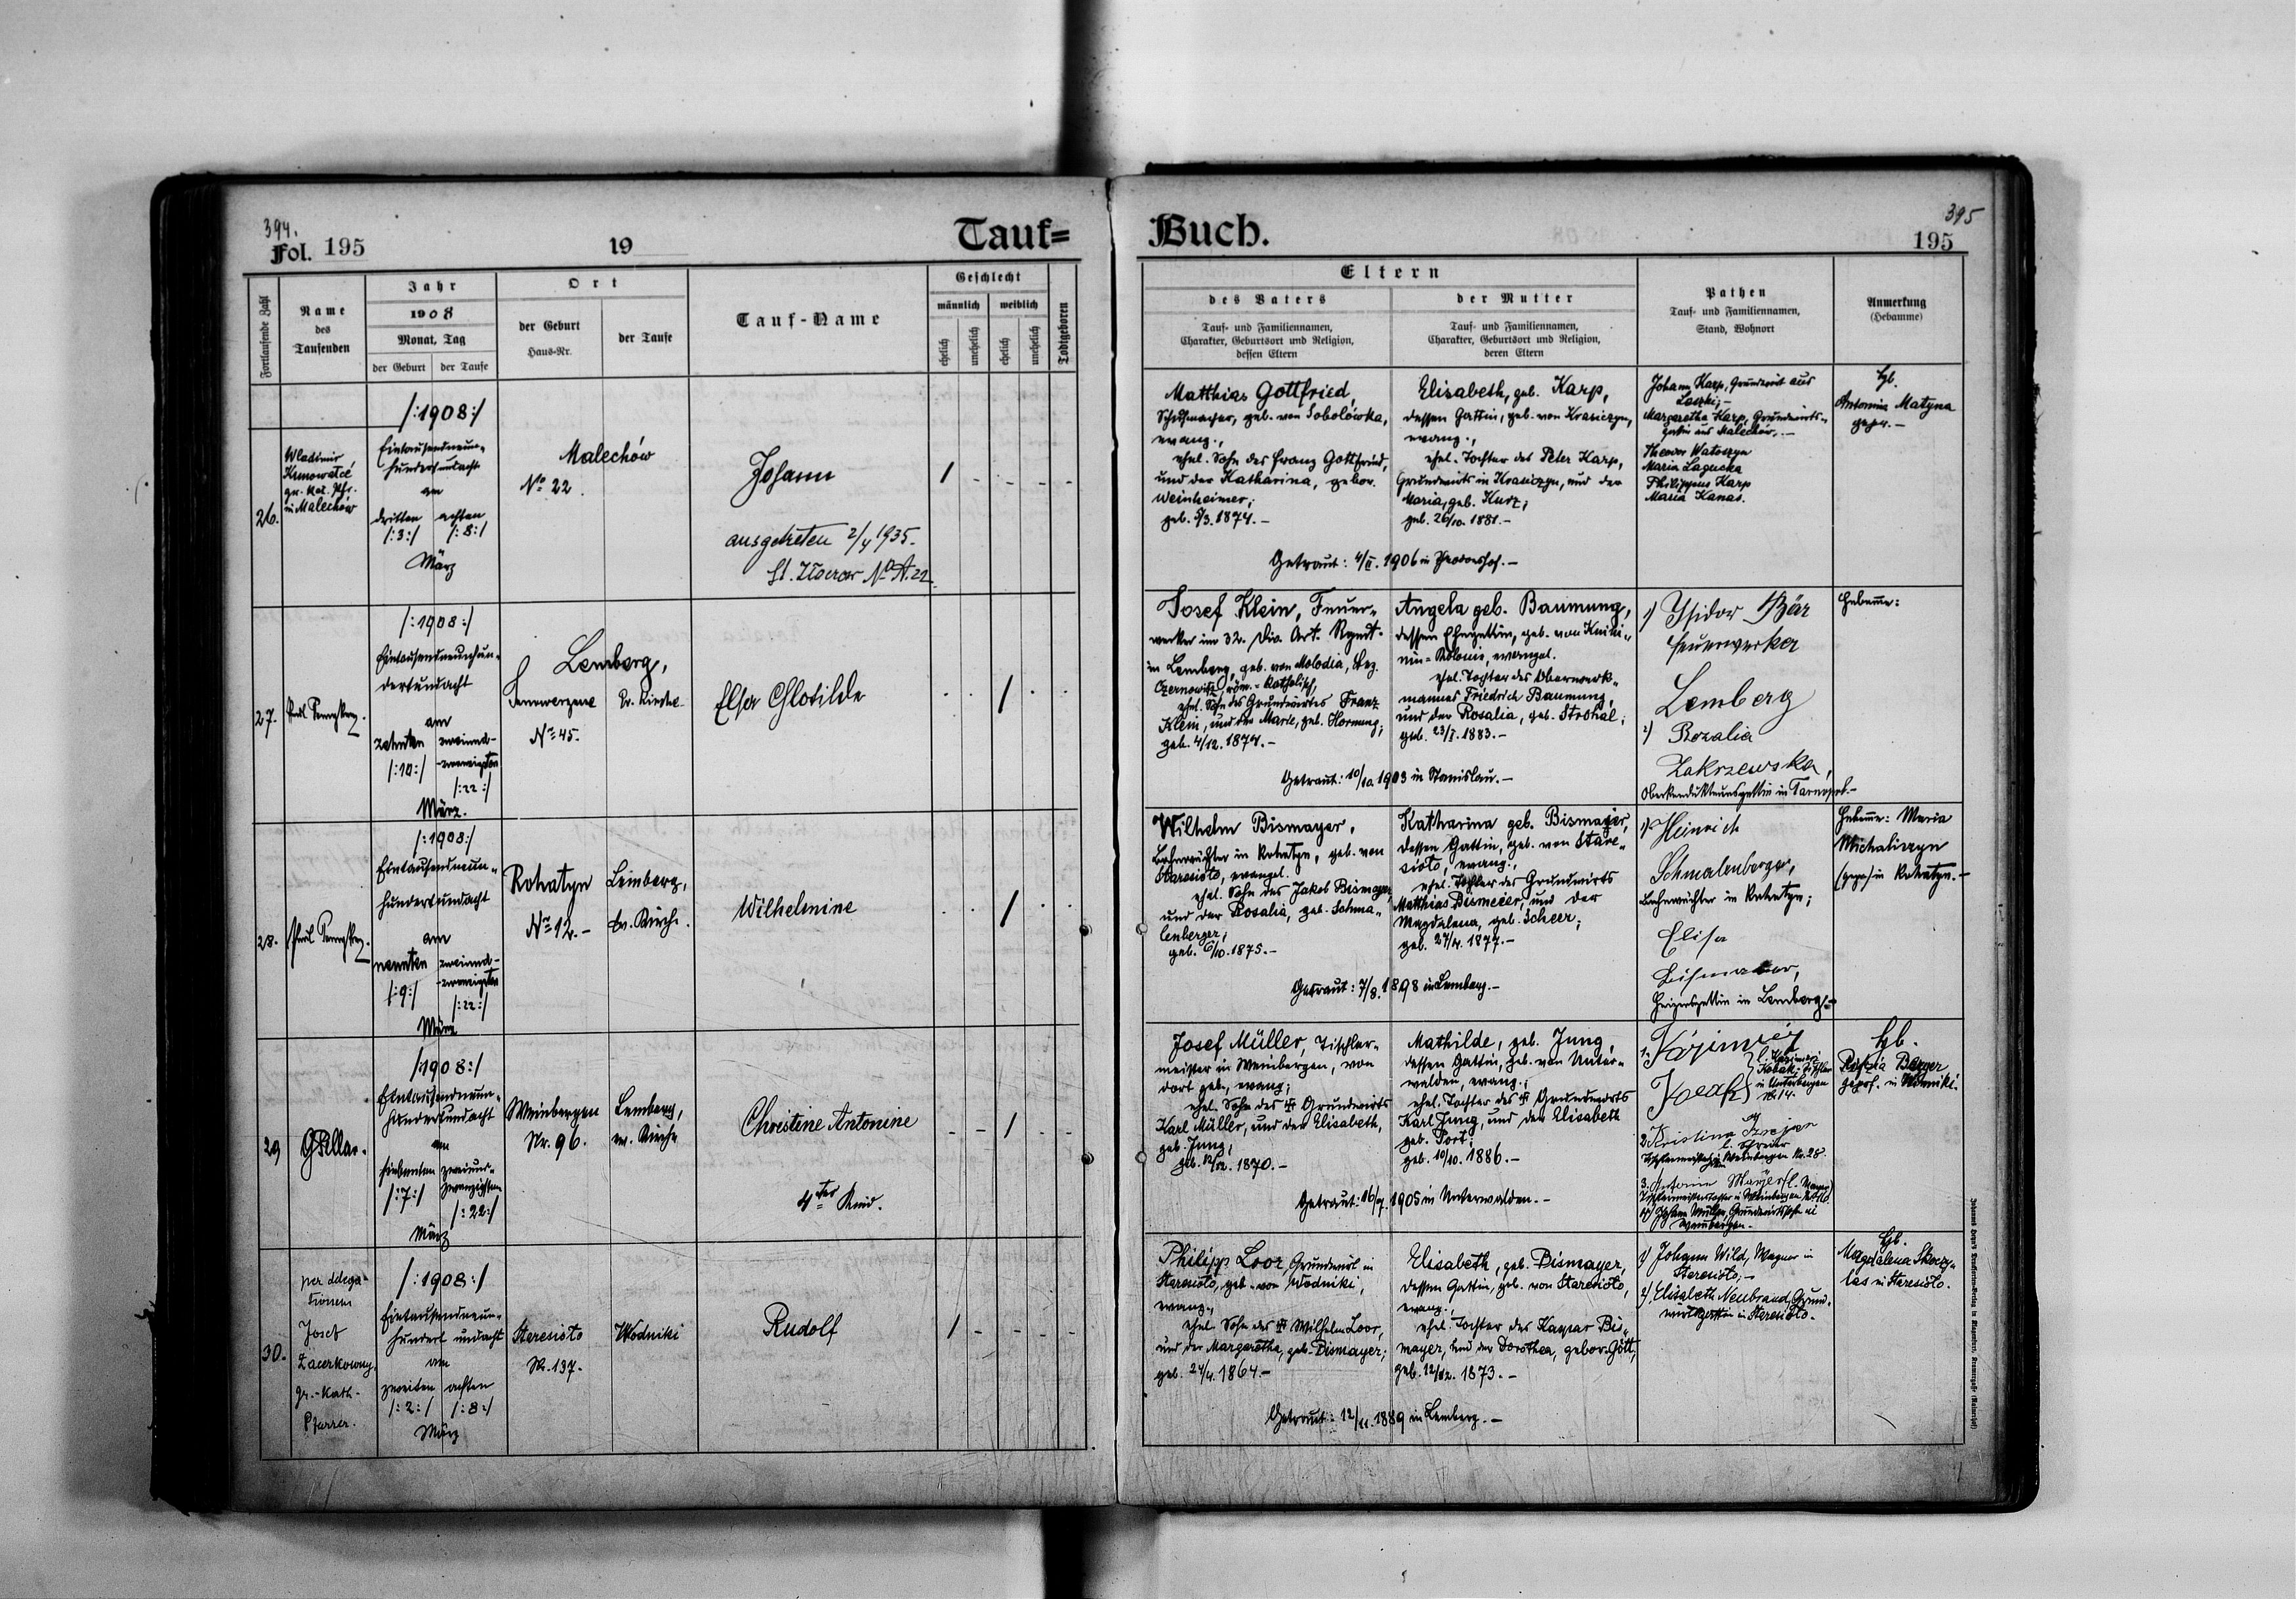 394.
Fol. 195
19
Tauf=
Fortlaufende Zahl
Name
des
Taufenden
Jahr
1908
Monat, Tag
der Geburt
der Taufe
Ort
der Geburt
Haus-Nr.
der Taufe
Tauf-Name
Geschlecht
männlich
weiblich
ehelich
unehelich
ehelich
unehelich
Todtgeboren
26.
Wladimir
gr. kat. Pfr.
in Malechów
/:1908:/
Eintausendneun-
hundertundacht
am
dritten achten
/:3:/ /:8:/
März
Malechów
No 22.
Johann
ausgetreten 2/4 1935.
1 - - - -
27.
/:1908:/
Eintausendneunhun-
dertundacht
am
zehnten zweiund-
zwanzigsten
/:10:/ /:22:/
März.
Lemberg,
No 45.
Ev. Kirche
Elsa Chlotilde
. . 1 . .
28.
/:1908:/
Eintausendneun-
hundertundacht
am
neunten zweiund-
zwanzigsten
/:9:/ /:22:/
März
Rohatyn
No 12.-
Lemberg,
ev. Kirche.
Wilhelmine
. . 1 . .
29
/:1908:/
Eintausendneun-
hundertundacht
am
siebenten zweiund-
zwanzigsten
/:7:/ /:22:/
März
Weinbergen
Nr. 96.
Lemberg,
ev. Kirche
Christine Antonine
4tes Kind.
- - 1 - -
30.
per delega-
tionem
Josef
Zacerkowny,
gr.-kath.
Pfarrer.
/:1908:/
Eintausendneun-
hundert undacht
am
zweiten achten
/:2:/ /:8:/
März
Staresioło
Nr. 137.
Wodniki
Rudolf
1 - - - -
Buch.
395
195
Eltern
des Vaters
Tauf- und Familiennamen,
Charakter, Geburtsort und Religion,
dessen Eltern
der Mutter
Tauf- und Familiennamen,
Charakter, Geburtsort und Religion,
deren Eltern
Pathen
Tauf- und Familiennamen,
Stand, Wohnort
Anmerkung
(Hebamme)
Matthias Gottfried,
geb. von Sobolówka,
evang.,
ehel. Sohn des Franz Gottfried,
und der Katharina, gebor.
Weinheimer;
geb. 5/3. 1874.-
Elisabeth, geb. Karp,
dessen Gattin, geb. von Krasiczyn,
evang.,
ehel. Tochter des Peter Karp,
Grundwirts in Krasiczyn, und der
Maria, geb. Kurz;
geb. 26/10. 1881.-
Getraut: 4/II. 1906 in
Johann Karp, Grundwirt aus
Laszki;-
Margaretha Karp, Grundwirts-
gattin aus Malechów.-
Theodor Watoszyn
Maria Lagucka
Philippus Karp
Maria Kanas.
Hb.
Antonina Matyna
gepr.-
Josef Klein, Feuer-
werker im 32. Div. Art. Rgmt.
in Lemberg, geb. von Molodia, Bez.
Czernowitz, röm.-katholisch,
ehel. Sohn des Grundwirtes Franz
Klein, und der Marie, geb. Hornung;
geb. 4/12. 1874.-
Angela geb. Baumung,
dessen Ehegattin, geb. von Knihi-
nin-Kolonie, evangel.
ehel. Tochter des Oberwerk-
mannes Friedrich Baumung,
und der Rosalia, geb. Strohal;
geb. 23/I. 1883.-
Getraut: 10/10. 1903 in Stanislau.-
1) Isidor Bär
Feuerwerker
Lemberg
2) Rozalia
Zakrzewska,
Oberkondukteursgattin in Tarnopol.-
Hebamme:
Wilhelm Bismayer,
Bahnwächter in Rohatyn, geb. von
Staresioło, evangel.
ehel. Sohn des Jakob Bismayer,
und der Rosalia, geb. Schma-
lenberger;
geb. 6/10. 1875.-
Katharina geb. Bismayer,
dessen Gattin, geb. von Stare-
sioło, evang.,
ehel. Tochter des Grundwirts
Matthias Bismeier, und der
Magdalena, geb. Scheer;
geb. 27/4. 1877.-
Getraut: 7/8. 1898 in Lemberg.-
1) Heinrich
Schmalenberger,
Bahnwächter in Rohatyn;
Elisa
in Lemberg.-
Hebamme: Maria
Michaliszyn
(gepr.) in Rohatyn.-
Josef Müller, Tischler-
meister in Weinbergen, von
dort geb., evang;
ehel. Sohn des Grundwirts
Karl Müller, und der Elisabeth,
geb. Jung;
1870.-
Mathilde, geb. Jung,
dessen Gattin, geb. von Unter-
walden, evang.;
ehel. Tochter des Grundwirts
Karl Jung, und der Elisabeth
geb. Port;
geb. 10/10. 1886.-
Getraut: 16/7. 1905 in Unterwalden.-
in Unterbergen
Nr. 14.
2. Kristina
in Weinbergen Nr. 28.
3.
4) Johann Müller, Grundwirtssohn in
Weinbergen.-
Hb.
Berger
geprf. in Winniki.
Philipp Loor, Grundwirt in
Staresioło, geb. von Wodniki,
evang.,
ehel. Sohn des Wilhelm Loor,
und der Margaretha, geb. Bismayer;
geb. 24/4. 1864.-
Elisabeth, geb. Bismayer,
dessen Gattin, geb. von Staresioło,
evang.;
ehel. Tochter des Kaspar Bis-
mayer, und der Dorothea, gebor. Gött;
geb. 12/12. 1873.-
Getraut: 12/11. 1889 in Lemberg.-
1) Johann Wild, Wagner in
Staresioło;-
2) Elisabeth Neubrand, Grund-
wirtsgattin in Staresioło.
Hb.
Magdalena
in Staresioło.